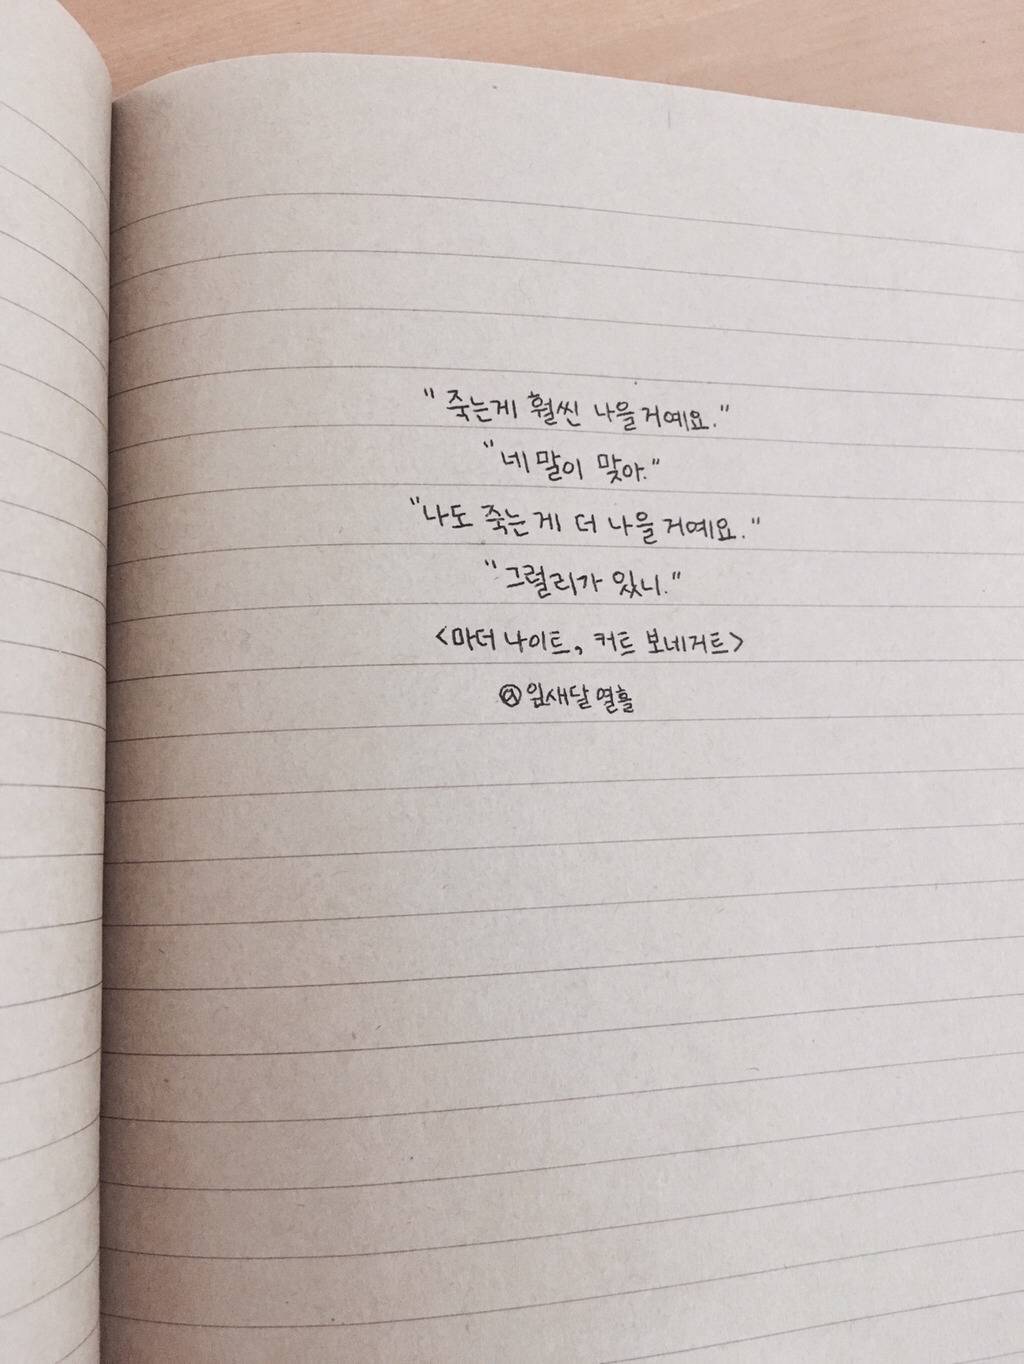 "죽는게 훨씬 나을거예요."
"네 말이 맞아."
"나도 죽는게 더 나을거예요."
"그럴리가 있니."
<마더 나이트, 커트 보네거트>
잎새달 열흘